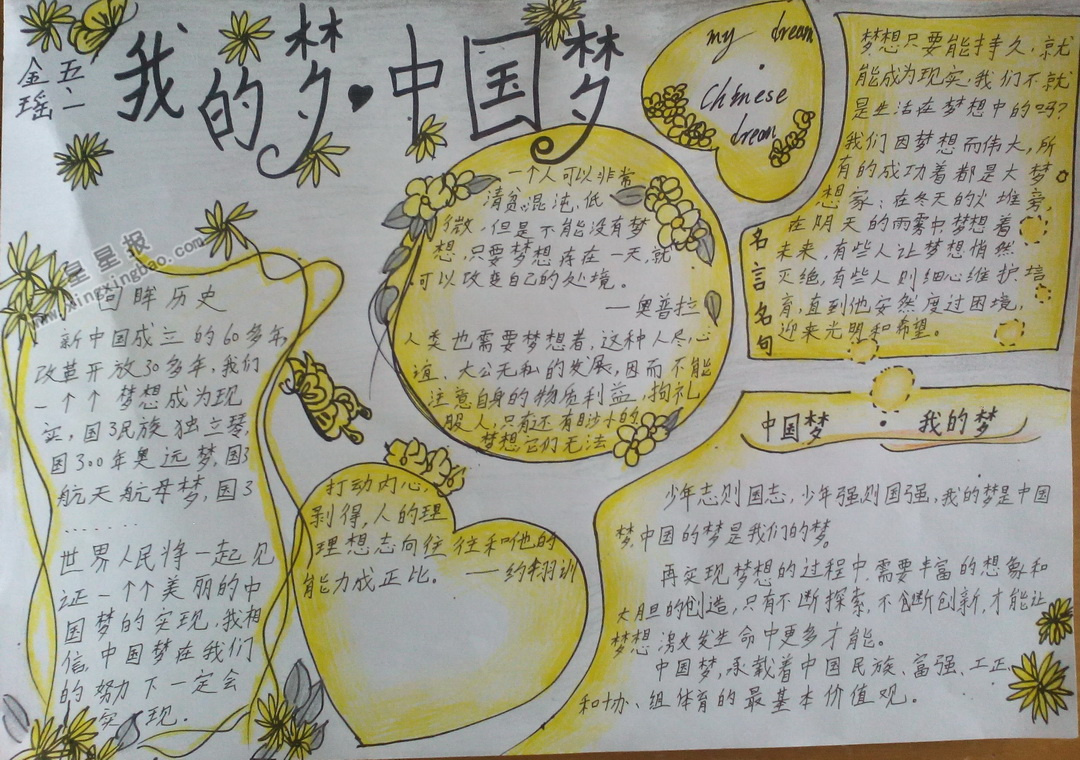 五、二
金瑶
我的梦·中国梦
my dream
·
Chinese
dream
梦想只要能持久,就
能成为现实,我们不就
是生活在梦想中的吗?
我们因梦想而伟大,所
有的成功着都是大梦
想家:在冬天的火堆旁,
在阴天的雨雾中,梦想着
未来,有些人让梦想悄然
灭绝,有些人则细心维护培
育,直到他安然度过困境,
迎来光明和希望。
名言名句
一个人可以非常
清贫、混沌、低
微,但是不能没有梦
想,只要梦想存在一天,就
可以改变自己的处境。
——奥普拉
人类也需要梦想者,这种人尽心
大公无私的发展,因而不能
注意自身的物质利益
梦想它们无法
星星报
www.xingxingbao.com
回眸历史
新中国成立的60多年,
改革开放30多年,我们
一个个梦想成为现
实,国3民族独立琴,
国300年奥远梦,国3
航天航母梦,国3
.......
世界人民将一起见
证一个个美丽的中
国梦的实现,我相
信,中国梦在我们
的努力下一定会
实现.
打动内心,
剥得,人的理
理想志向往往和他的
能力成正比。——约翔训
中国梦·我的梦
少年志则国志,少年强则国强,我的梦是中国
梦,中国的梦是我们的梦。
再实现梦想的过程中,需要丰富的想象和
大胆的创造,只有不断探索,不断创新,才能让
梦想激发生命中更多才能。
中国梦,承载着中国民族、富强、工正
和协、组体育的最基本价值观。